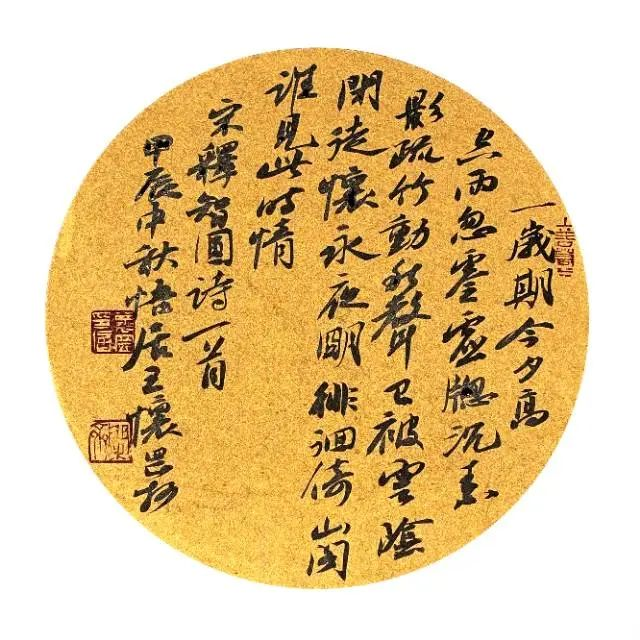 一歲期今夕高
雨忽虛牕沉素
影疏竹動秋聲已被雲陰
閉徒懷永夜明徘徊倚山閣
誰見此時情
宋釋智圓詩一首
甲辰中秋悟居王懷